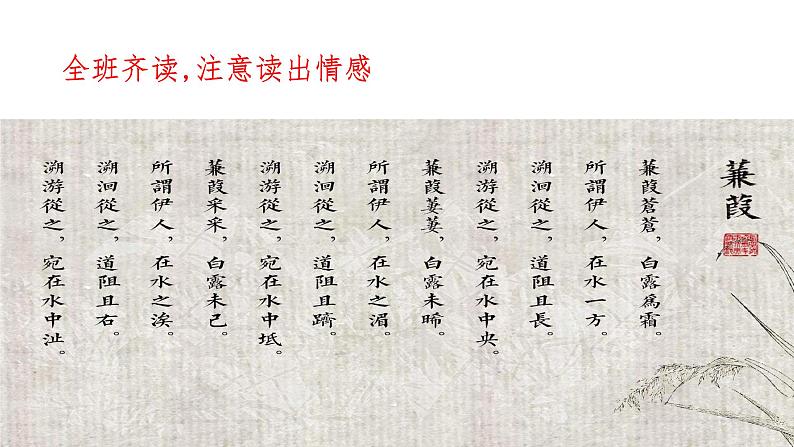 全班齐读,注意读出情感
蒹葭
蒹葭蒼蒼，白露爲霜。
所謂伊人，在水一方。
溯洄從之，道阻且長。
溯游從之，宛在水中央。
蒹葭萋萋，白露未晞。
所謂伊人，在水之湄。
溯洄從之，道阻且躋。
溯游從之，宛在水中坻。
蒹葭采采，白露未已。
所謂伊人，在水之涘。
溯洄從之，道阻且右。
溯游從之，宛在水中沚。